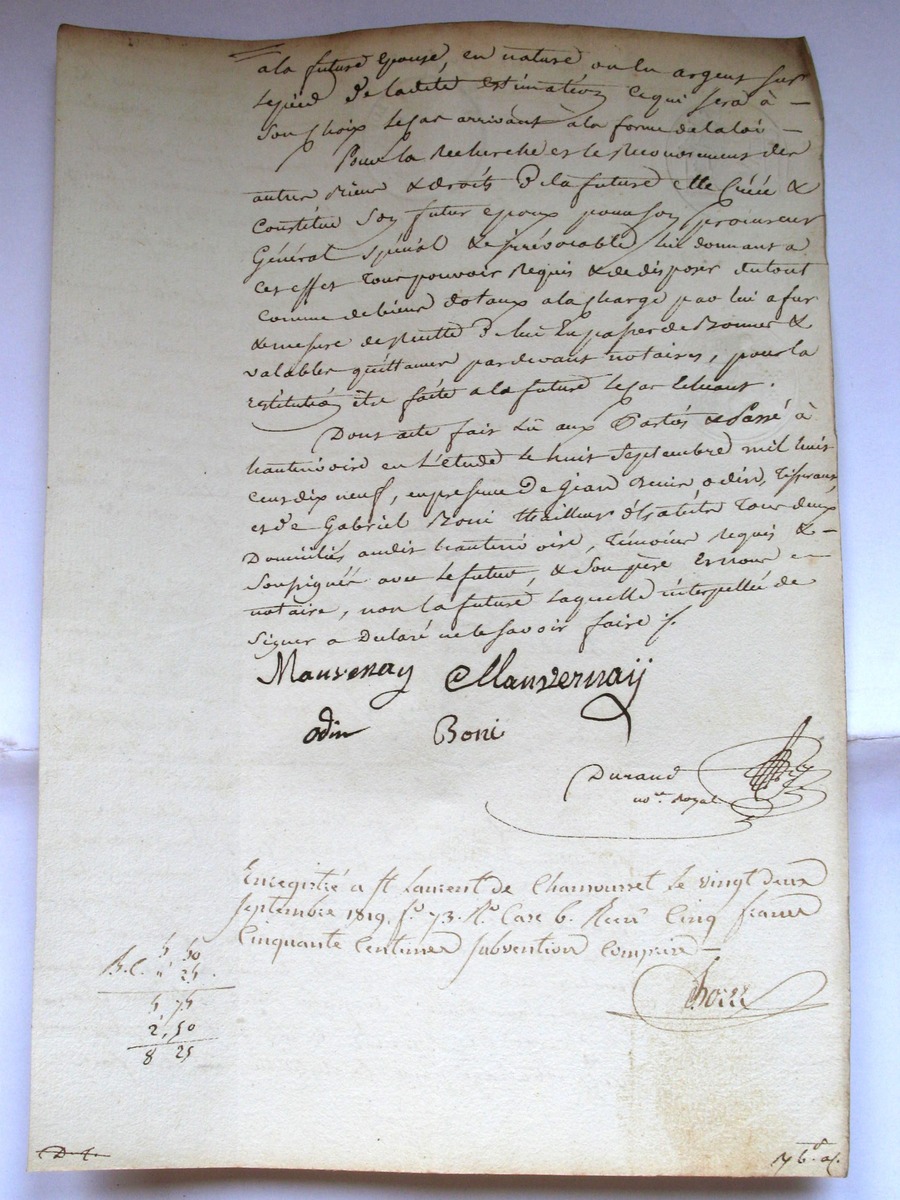 a la future Epouse, en nature ou en argent sur
le pied de la dite Estimation ce qui sera à -
son choix le cas arrivant a la forme de la loi -
Pour la Recherche et le Recouvrement des
autres Biens & droits de la future elle Créée &
Constitue son futur epoux pour son procureur
Général spécial & irrévocable lui donnant a
cet effet tout pouvoir Requis & de disposer du tout
comme de biens dotaux a la charge par lui a fur
& mesure de passer de Bonnes &
valables quittances pardevant notaires, pour la
restitution être faite a la future le cas Echéant.
Dont acte fait Lû aux Parties & Passé à
hauterivoire en L'étude le huit Septembre mil huit
cent dix neuf, en presence De Jean odin, Tisserand,
et de Gabriel Boni thailleur d'habits Tous deux
Domiciliés audit hauterivoire, Témoins Requis & -
Soussignés avec le futur, & son père Et nous -
notaire, non la future laquelle interpellée de
signer a Déclaré ne le savoir faire /.
Mauvenay Mauvernaÿ
odin Boni
Durand
no.re Royal
Enregistré a St Laurent de Chamousset le vingt deux
Septembre 1819. f.o 73. R.o Case 6. Recu Cinq francs
Cinquante Centimes subvention comprise -
5 50
R.C. " 25.
5 75
2,50
8 25